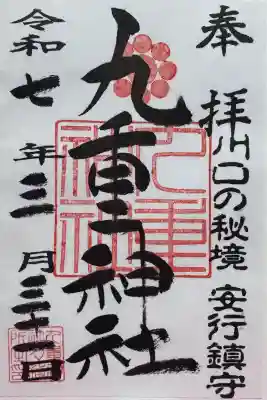 奉拝 川口の秘境 安行鎮守
九重神社
令和七年三月三十日